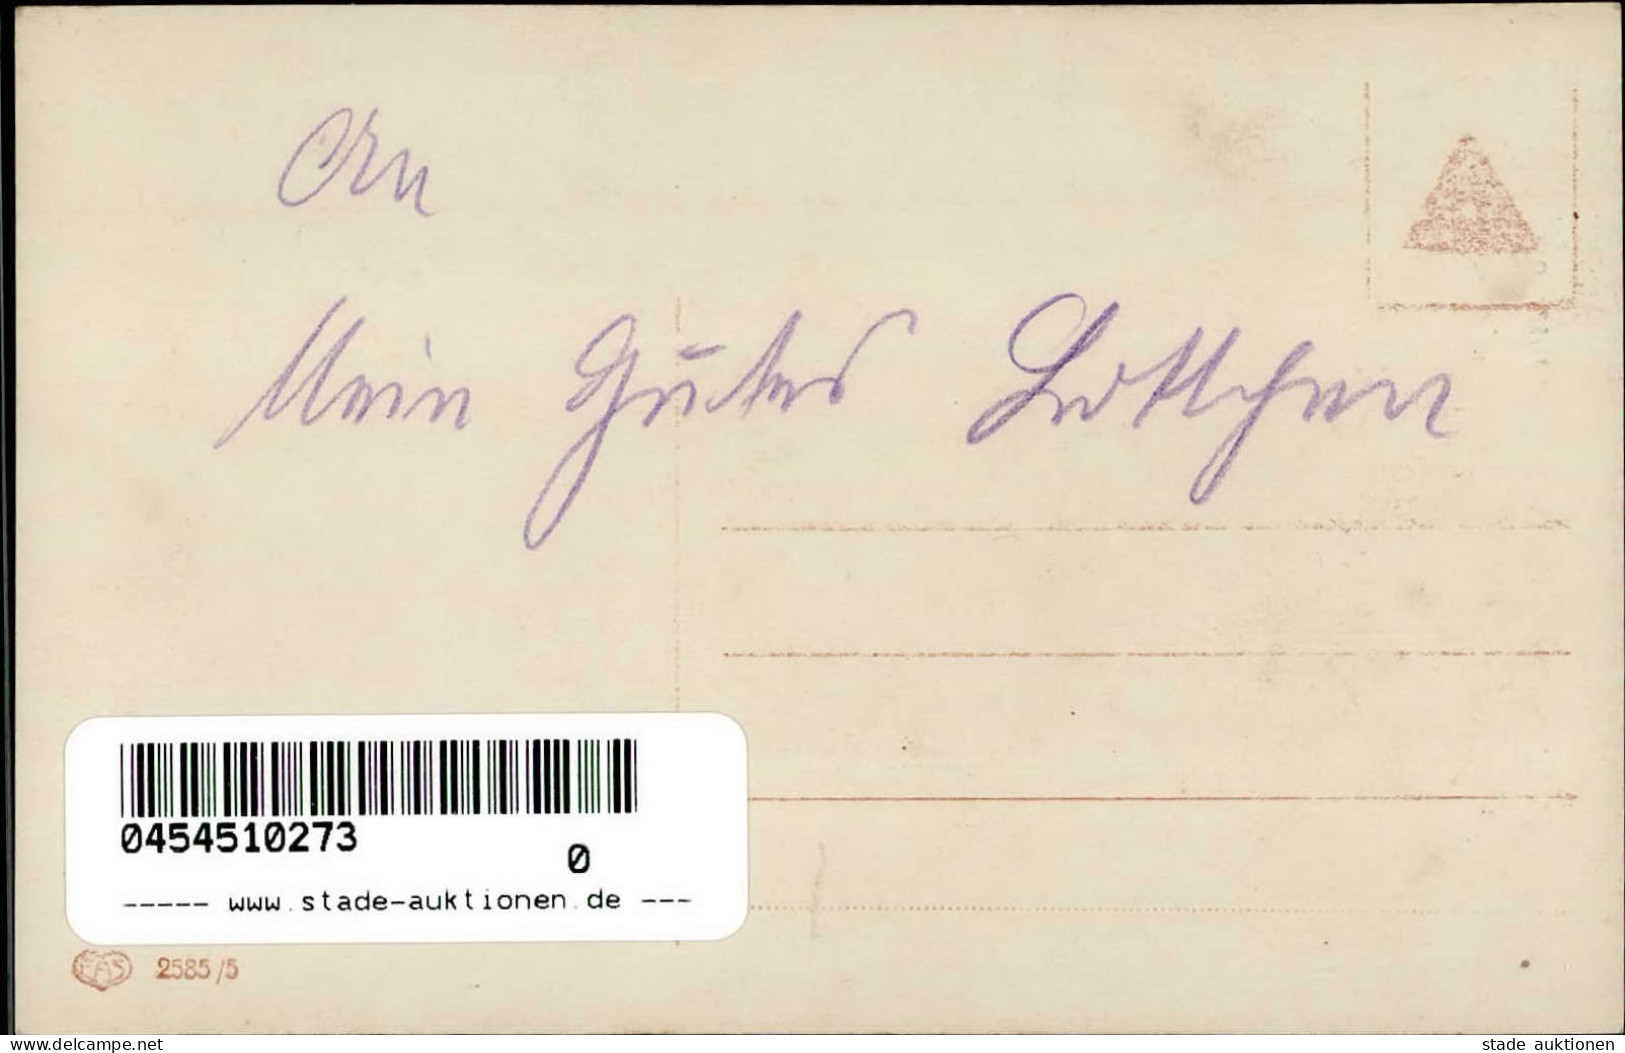 An
Mein gutes Lottchen
0454510273
0
----- www.stade-auktionen.de ---
EAS 2585/5
www.delcampe.net
stade auktionen